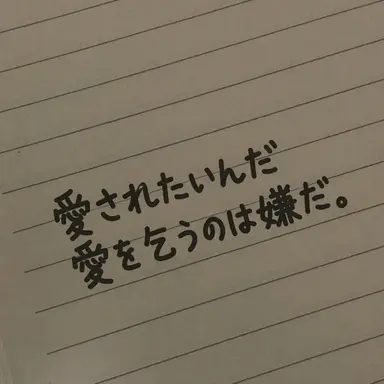 愛されたいんだ
愛を乞うのは嫌だ。